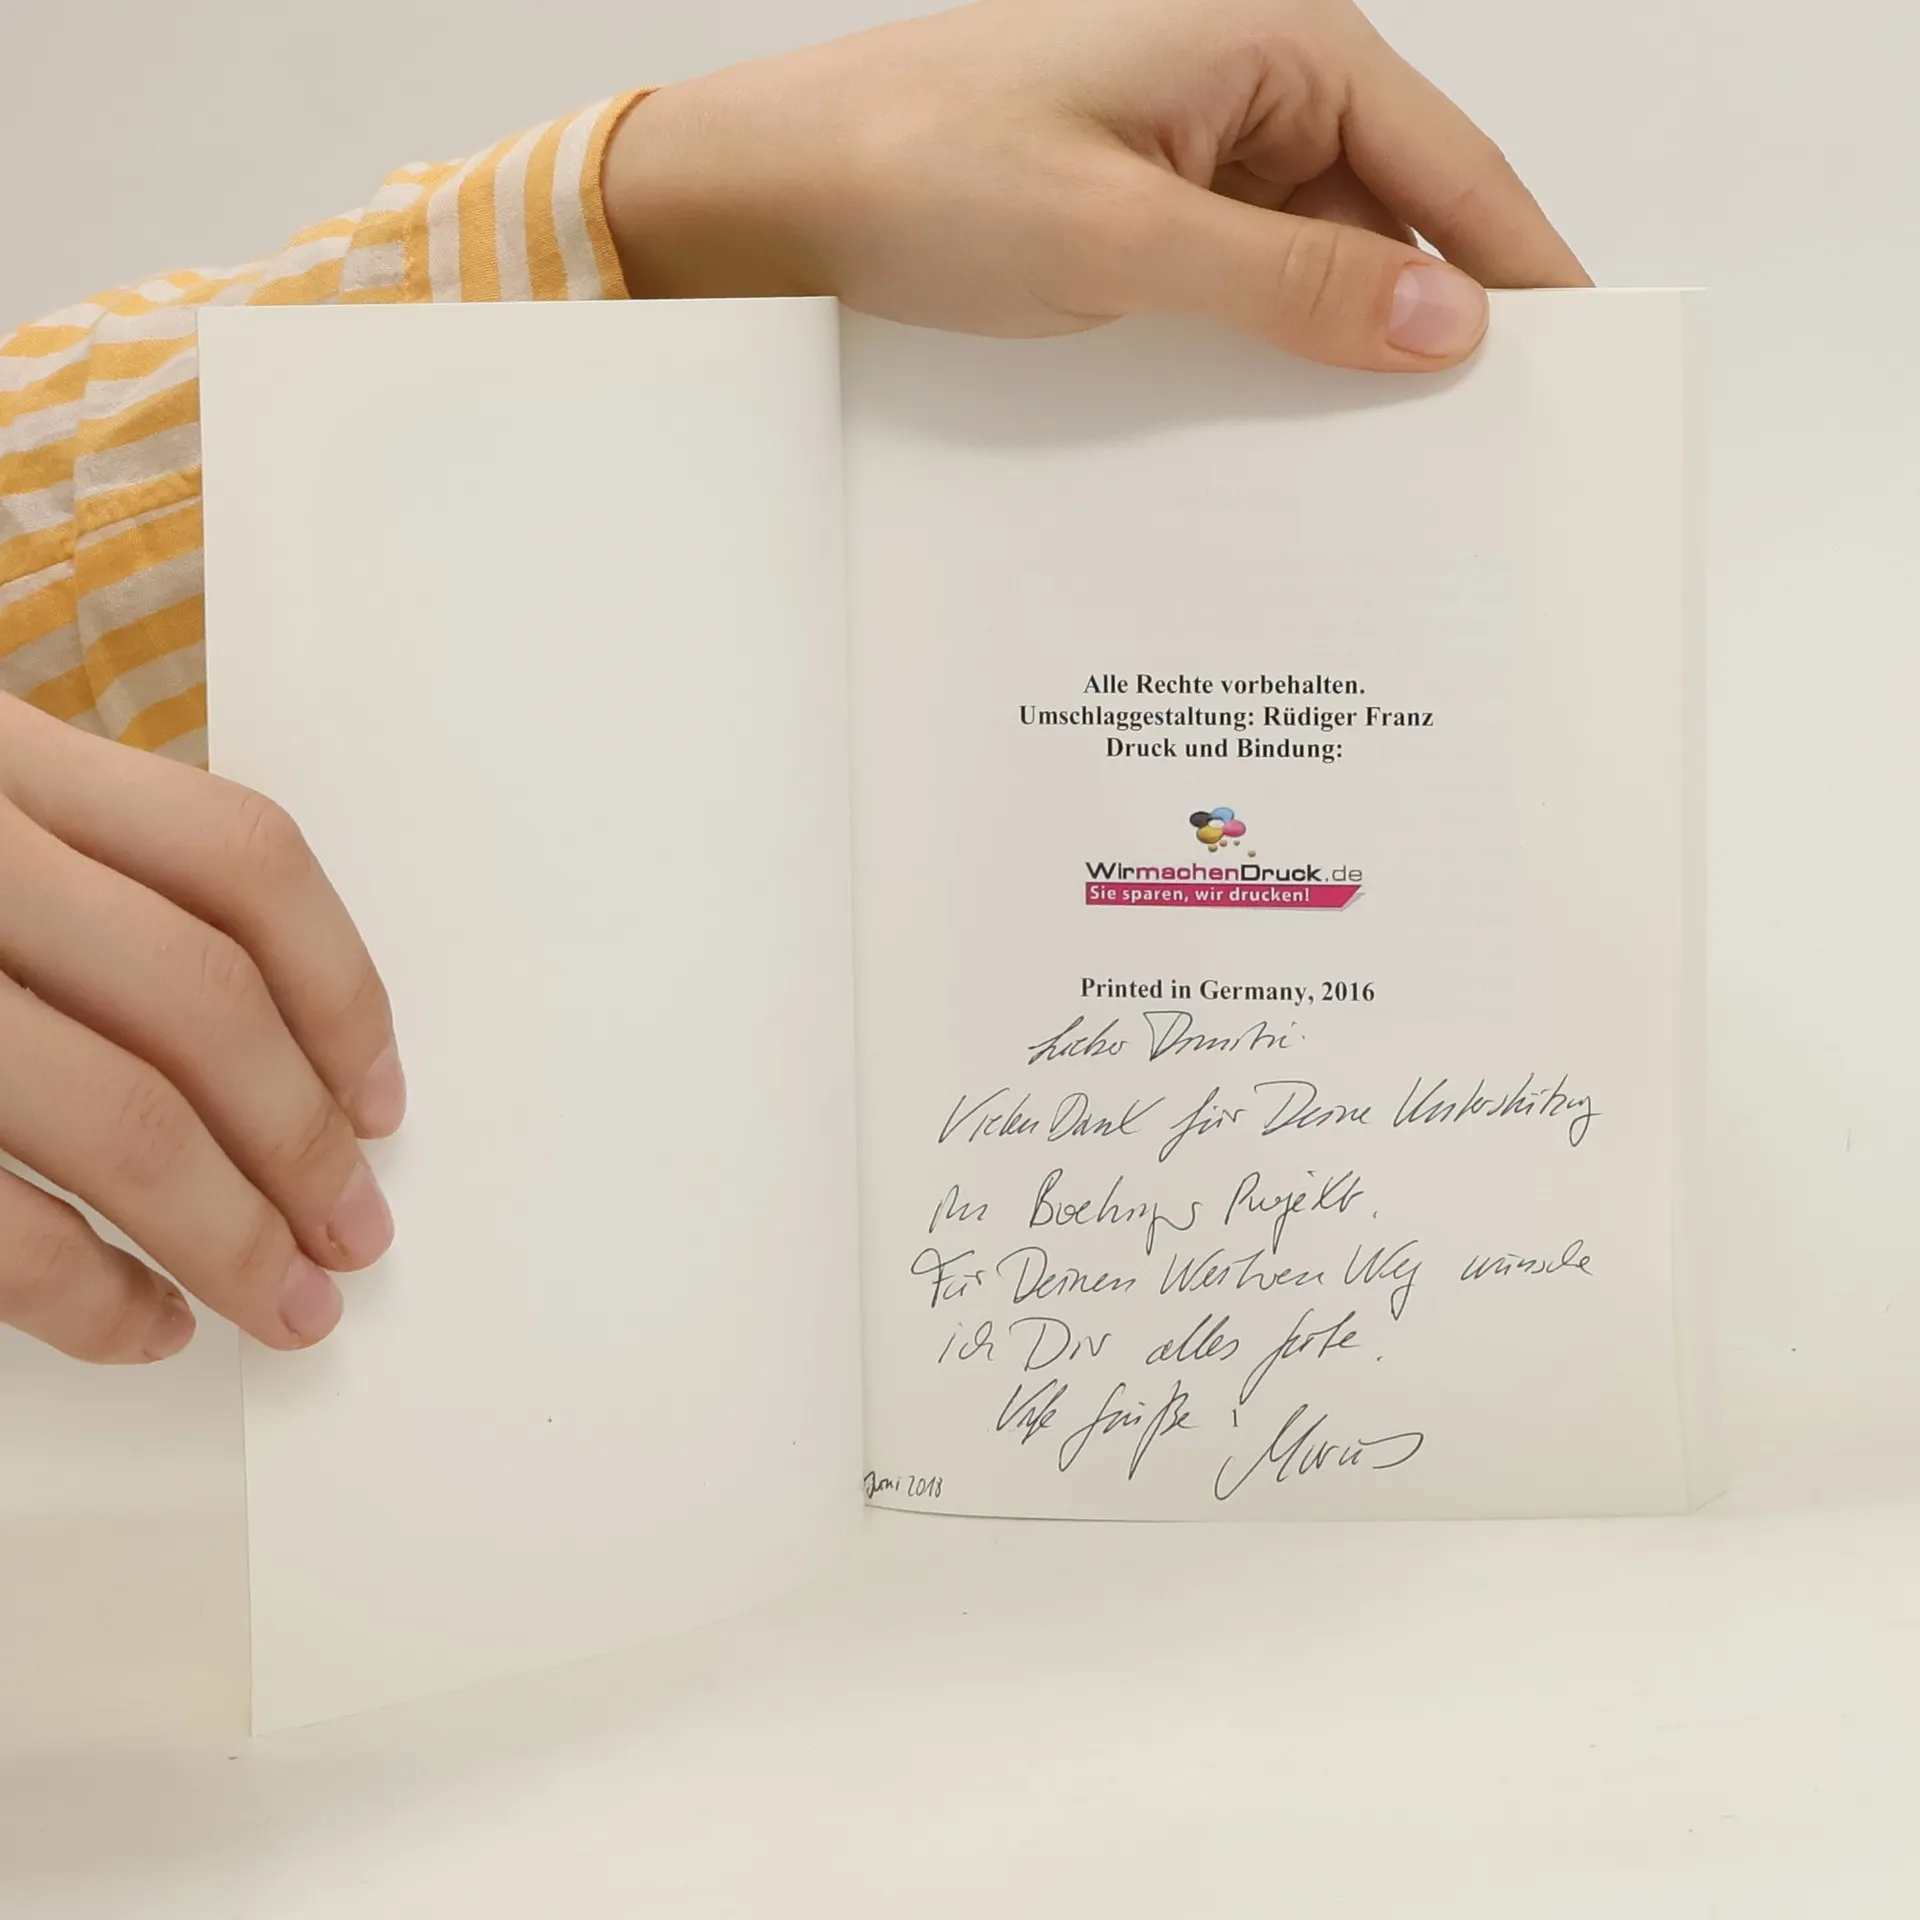 Alle Rechte vorbehalten.
Umschlaggestaltung: Rüdiger Franz
Druck und Bindung:
WirmachenDruck.de
Sie sparen, wir drucken!
Printed in Germany, 2016
Lieber Dimitri.
Vielen Dank für Deine Unterstützung
im Projekt.
Für Deinen Weiteren Weg wünsche
ich Dir alles Gute.
Viele Grüße!
Marius
Juni 2018